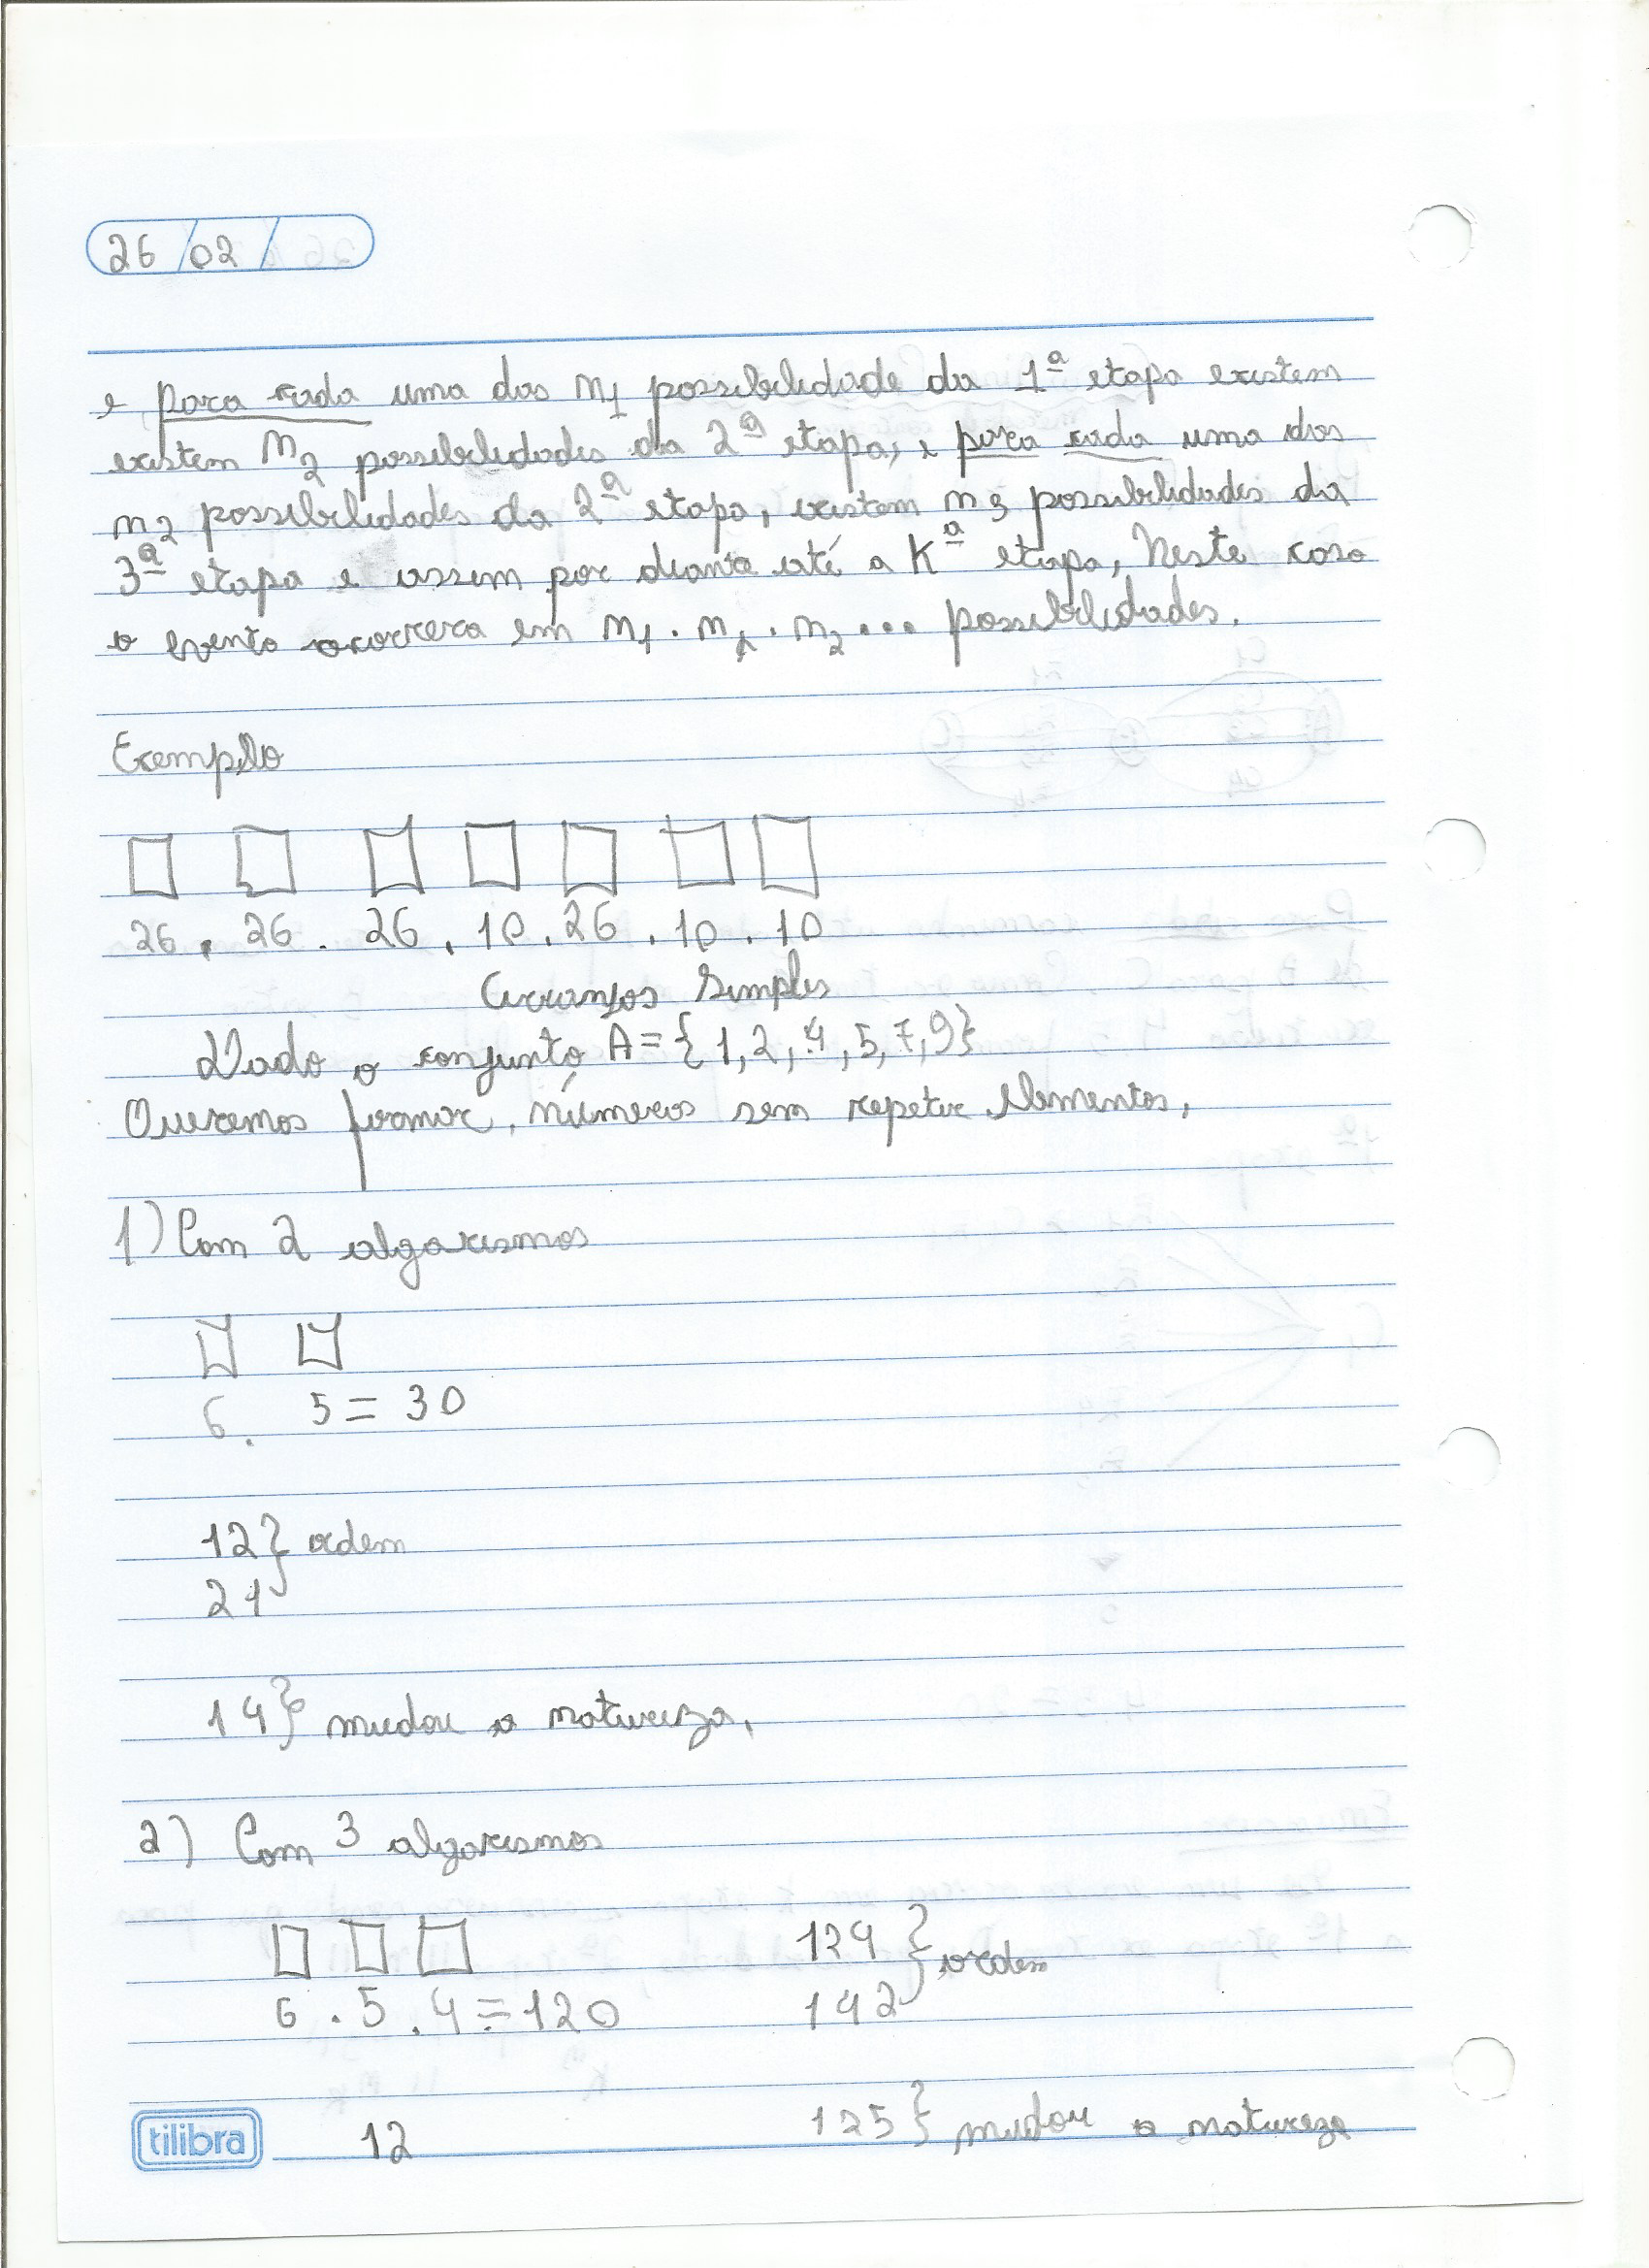 26/02/
e para cada uma das m1 possibilidade da 1ª etapa existem
existem m2 possibilidades da 2ª etapa, e para cada uma das
m2 possibilidades da 2ª etapa, existem m3 possibilidades da
3ª etapa e assim por diante até a Kª etapa, Neste caso
o evento ocorrera em m1 . m2 . m2 ... possibilidades.
Exemplo
26 . 26 . 26 . 10 . 26 . 10 . 10
Arranjos Simples
Dado o conjunto A = {1, 2, 4, 5, 7, 9}
Queremos formar, números sem repetir elementos,
1) Com 2 algarismos
6 . 5 = 30
12 } ordem
21
14 } mudou a natureza,
2) Com 3 algarismos
124 } ordem
6 . 5 . 4 = 120 142
tilibra 12 125 } mudou a natureza